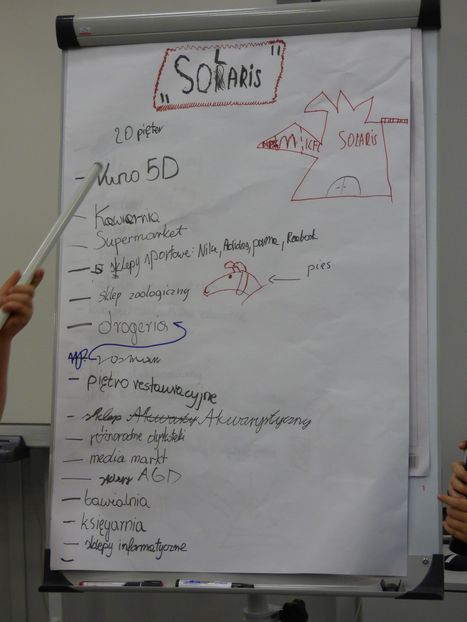 "SOLARIS"
20 pięter
SOLARIS
- Kino 5D
- Kawiarnia
- Supermarket
- sklepy sportowe: Nike, Adidas, puma, Reebok
- sklep zoologiczny
← pies
- drogeria
np. rosman
- piętro restauracyjne
- sklep Akwarystyczny
- różnorodne
- media markt
- AGD
- bawialnia
- księgarnia
- sklepy informatyczne
-